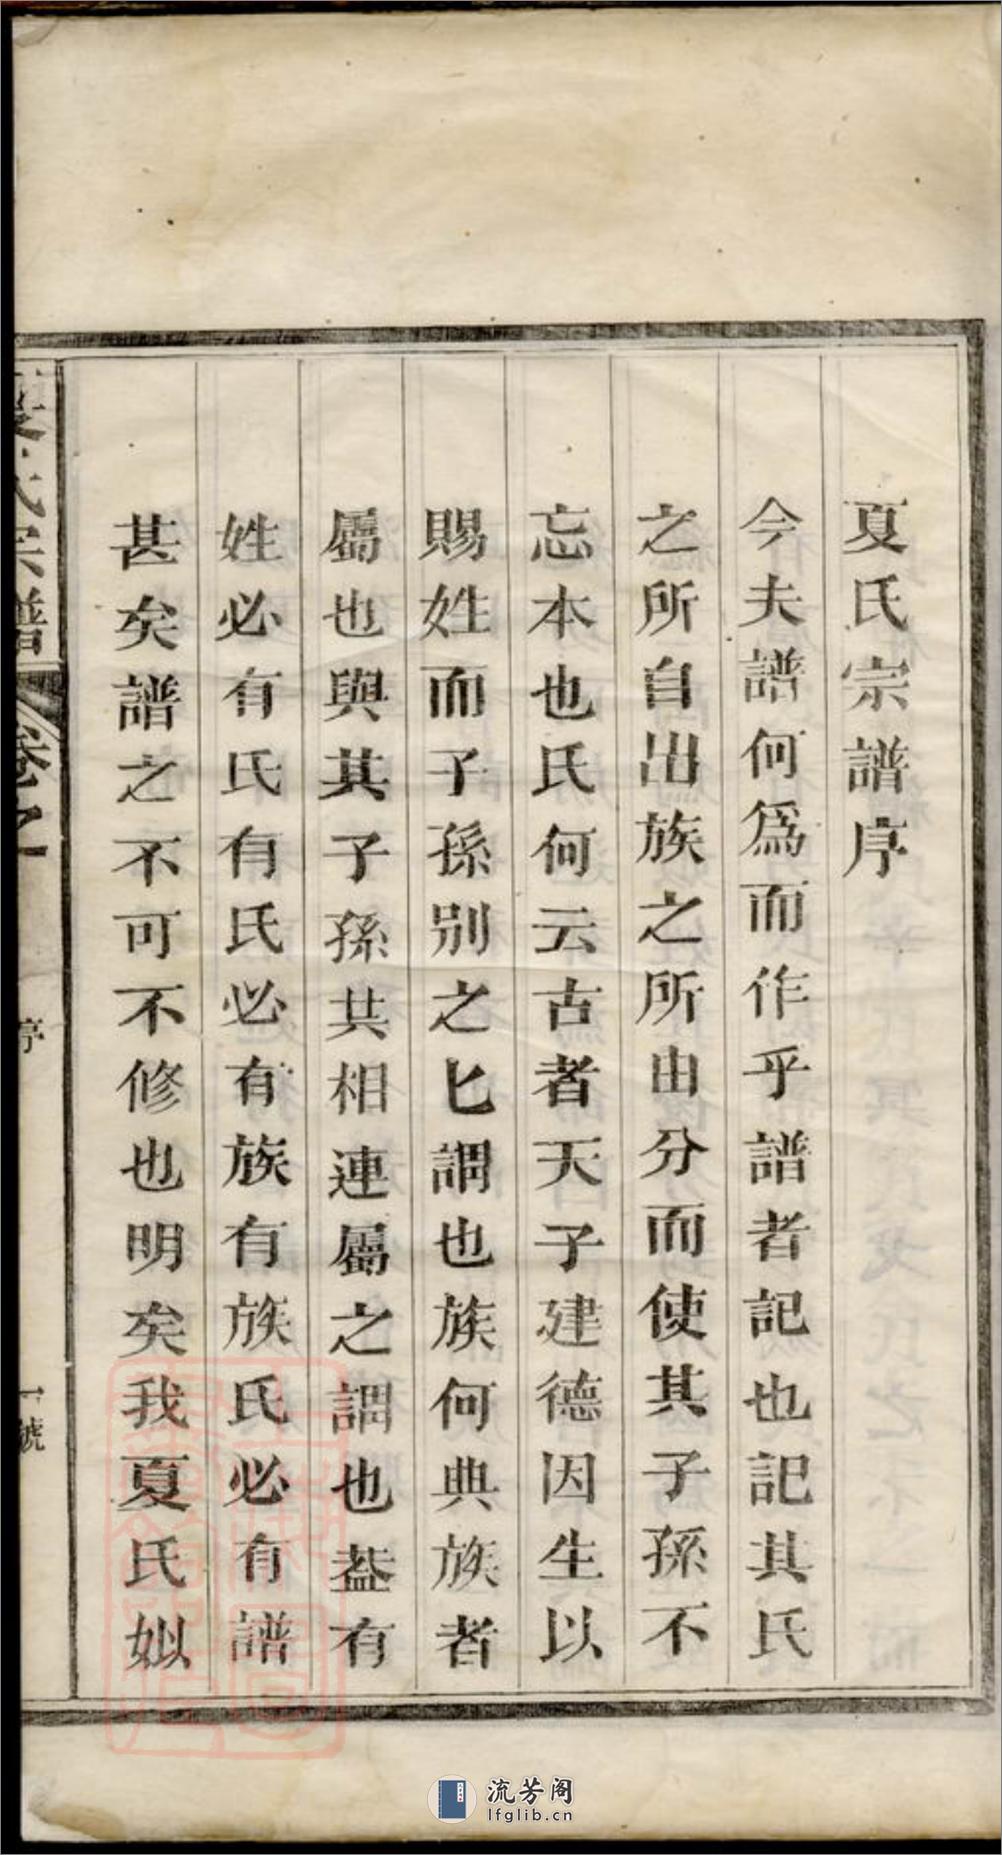 夏氏宗譜序
今夫譜何爲而作乎譜者記也記其氏
之所自出族之所由分而使其子孫不
忘本也氏何云古者天子建德因生以
賜姓而子孫別之匕謂也族何典族者
屬也與其子孫共相連屬之謂也葢有
姓必有氏有氏必有族有族氏必有譜
甚矣譜之不可不修也明矣我夏氏姒
夏氏宗譜
卷之一
序
一號
流芳阁
lfglib.cn